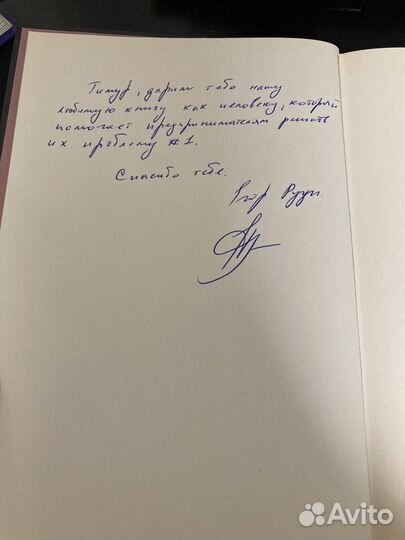 Тимур, дарим тебе нашу
любимую книгу как человеку, который
помогает предпринимателям решать
их проблему #1.
Спасибо тебе.
Егор
Avito